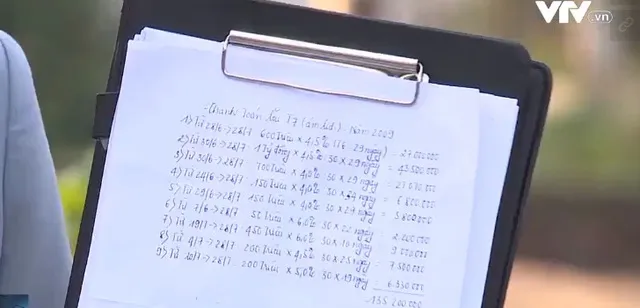 VTV.vn
Thanh Toán lãi T7 (âm lịch) Năm 2009
1) Từ 28/6 -> 28/7 600 triệu × 4,5% (T6 29 ngày) = 27 000 000
2) Từ 30/6 -> 28/7 1 Tỷ đồng × 4,5% 30 × 29 ngày = 43.500 000
3) Từ 30/6 -> 28/7 700 triệu × 4,0% 30 × 29 ngày = 27 070 000
4) Từ 24/6 -> 28/7 150 triệu × 4,0% 30 × ngày = 6 800 000
5) Từ 29/6 -> 28/7 150 triệu × 4,0% 30 × 29 ngày = 5 800 000
6) Từ 7/6 -> 28/7 50 triệu × 6,0% 30 × 22 ngày 2.200 000
7) Từ 19/7 -> 28/7 450 triệu × 6,0% 30 × 10 ngày 9 000 000
8) Từ 4/7 -> 28/7 200 triệu × 4,5% 30 × 25 ngày = 7 500 000
9) Từ 10/7 -> 28/7 200 triệu × 5,0% 30 × 19 ngày 6.330 000
135 200 000